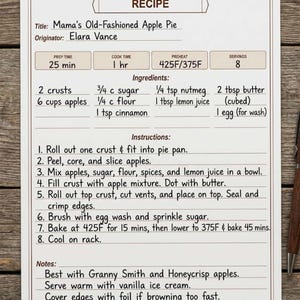 RECIPE
Title: Mama's Old-Fashioned Apple Pie
Originator: Elara Vance
PREP TIME COOK TIME PREHEAT SERVINGS
25 min 1 hr 425F/375F 8
Ingredients:
2 crusts ¾ c sugar ¼ tsp nutmeg 2 tbsp butter
6 cups apples ¼ c flour 1 tbsp lemon juice (cubed)
1 tsp cinnamon 1 egg (for wash)
Instructions:
1. Roll out one crust & fit into pie pan.
2. Peel, core, and slice apples.
3. Mix apples, sugar, flour, spices, and lemon juice in a bowl.
4. Fill crust with apple mixture. Dot with butter.
5. Roll out top crust, cut vents, and place on top. Seal and
crimp edges.
6. Brush with egg wash and sprinkle sugar.
7. Bake at 425F for 15 mins, then lower to 375F & bake 45 mins.
8. Cool on rack.
Notes:
Best with Granny Smith and Honeycrisp apples.
Serve warm with vanilla ice cream.
Cover edges with foil if browning too fast.